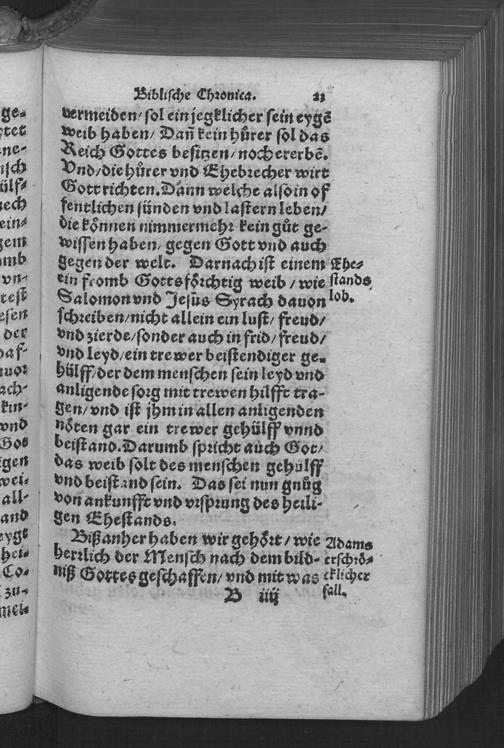 Biblische Chronica. 23
vermeiden/ sol ein jegklicher sein eygē
weib haben/ Dañ kein hůrer sol das
Reich Gottes besitzen/ noch ererbē.
Vnd/ die hůrer vnd Ehebrecher wirt
Gott richten. Dann welche also in of
fentlichen sünden vnd lastern leben/
die können nimmermehr kein gůt ge-
wissen haben/ gegen Gott vnd auch
gegen der welt. Darnach ist einem
ein fromb Gottsförchtig weib/ wie
Salomon vnd Jesus Syrach dauon
schreiben/ nicht allein ein lust/ freud/
vnd zierde/ sonder auch in frid/ freud/
vnd leyd/ ein trewer beistendiger ge-
hülff/ der dem menschen sein leyd vnd
anligende sorg mit trewen hilfft tra-
gen/ vnd ist jhm in allen anligenden
nöten gar ein trewer gehülff vnnd
beistand. Darumb spricht auch Got/
das weib solt des menschen gehülff
vnd beistand sein. Das sei nun gnůg
von ankunfft vnd vrsprung des heili-
gen Ehestands.
Ehe-
stands
lob.
Bißanher haben wir gehört/ wie
herrlich der Mensch nach dem bild-
niß Gottes geschaffen/ vnd mit was
Adams
erschrö-
cklicher
fall.
B iiij
ge-
ne-
ülf-
ein-
zem
vn-
der
ach-
kin-
vnd
Got
igen
wei-
all-
and
eygt
hei-
Co-
zu-